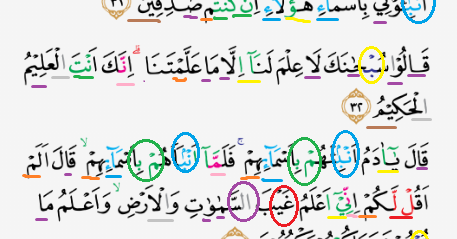 اَنْۢبِـُٔوْنِيْ بِاَسْمَاۤءِ هٰٓؤُلَاۤءِ اِنْ كُنْتُمْ صٰدِقِيْنَ ٣١
قَالُوْا سُبْحٰنَكَ لَا عِلْمَ لَنَآ اِلَّا مَا عَلَّمْتَنَاۗ اِنَّكَ اَنْتَ الْعَلِيْمُ
الْحَكِيْمُ ٣٢
قَالَ يٰٓاٰدَمُ اَنْۢبِئْهُمْ بِاَسْمَاۤىِٕهِمْ ۚ فَلَمَّآ اَنْۢبَاَهُمْ بِاَسْمَاۤىِٕهِمْۙ قَالَ اَلَمْ
اَقُلْ لَّكُمْ اِنِّيْٓ اَعْلَمُ غَيْبَ السَّمٰوٰتِ وَالْاَرْضِۙ وَاَعْلَمُ مَا